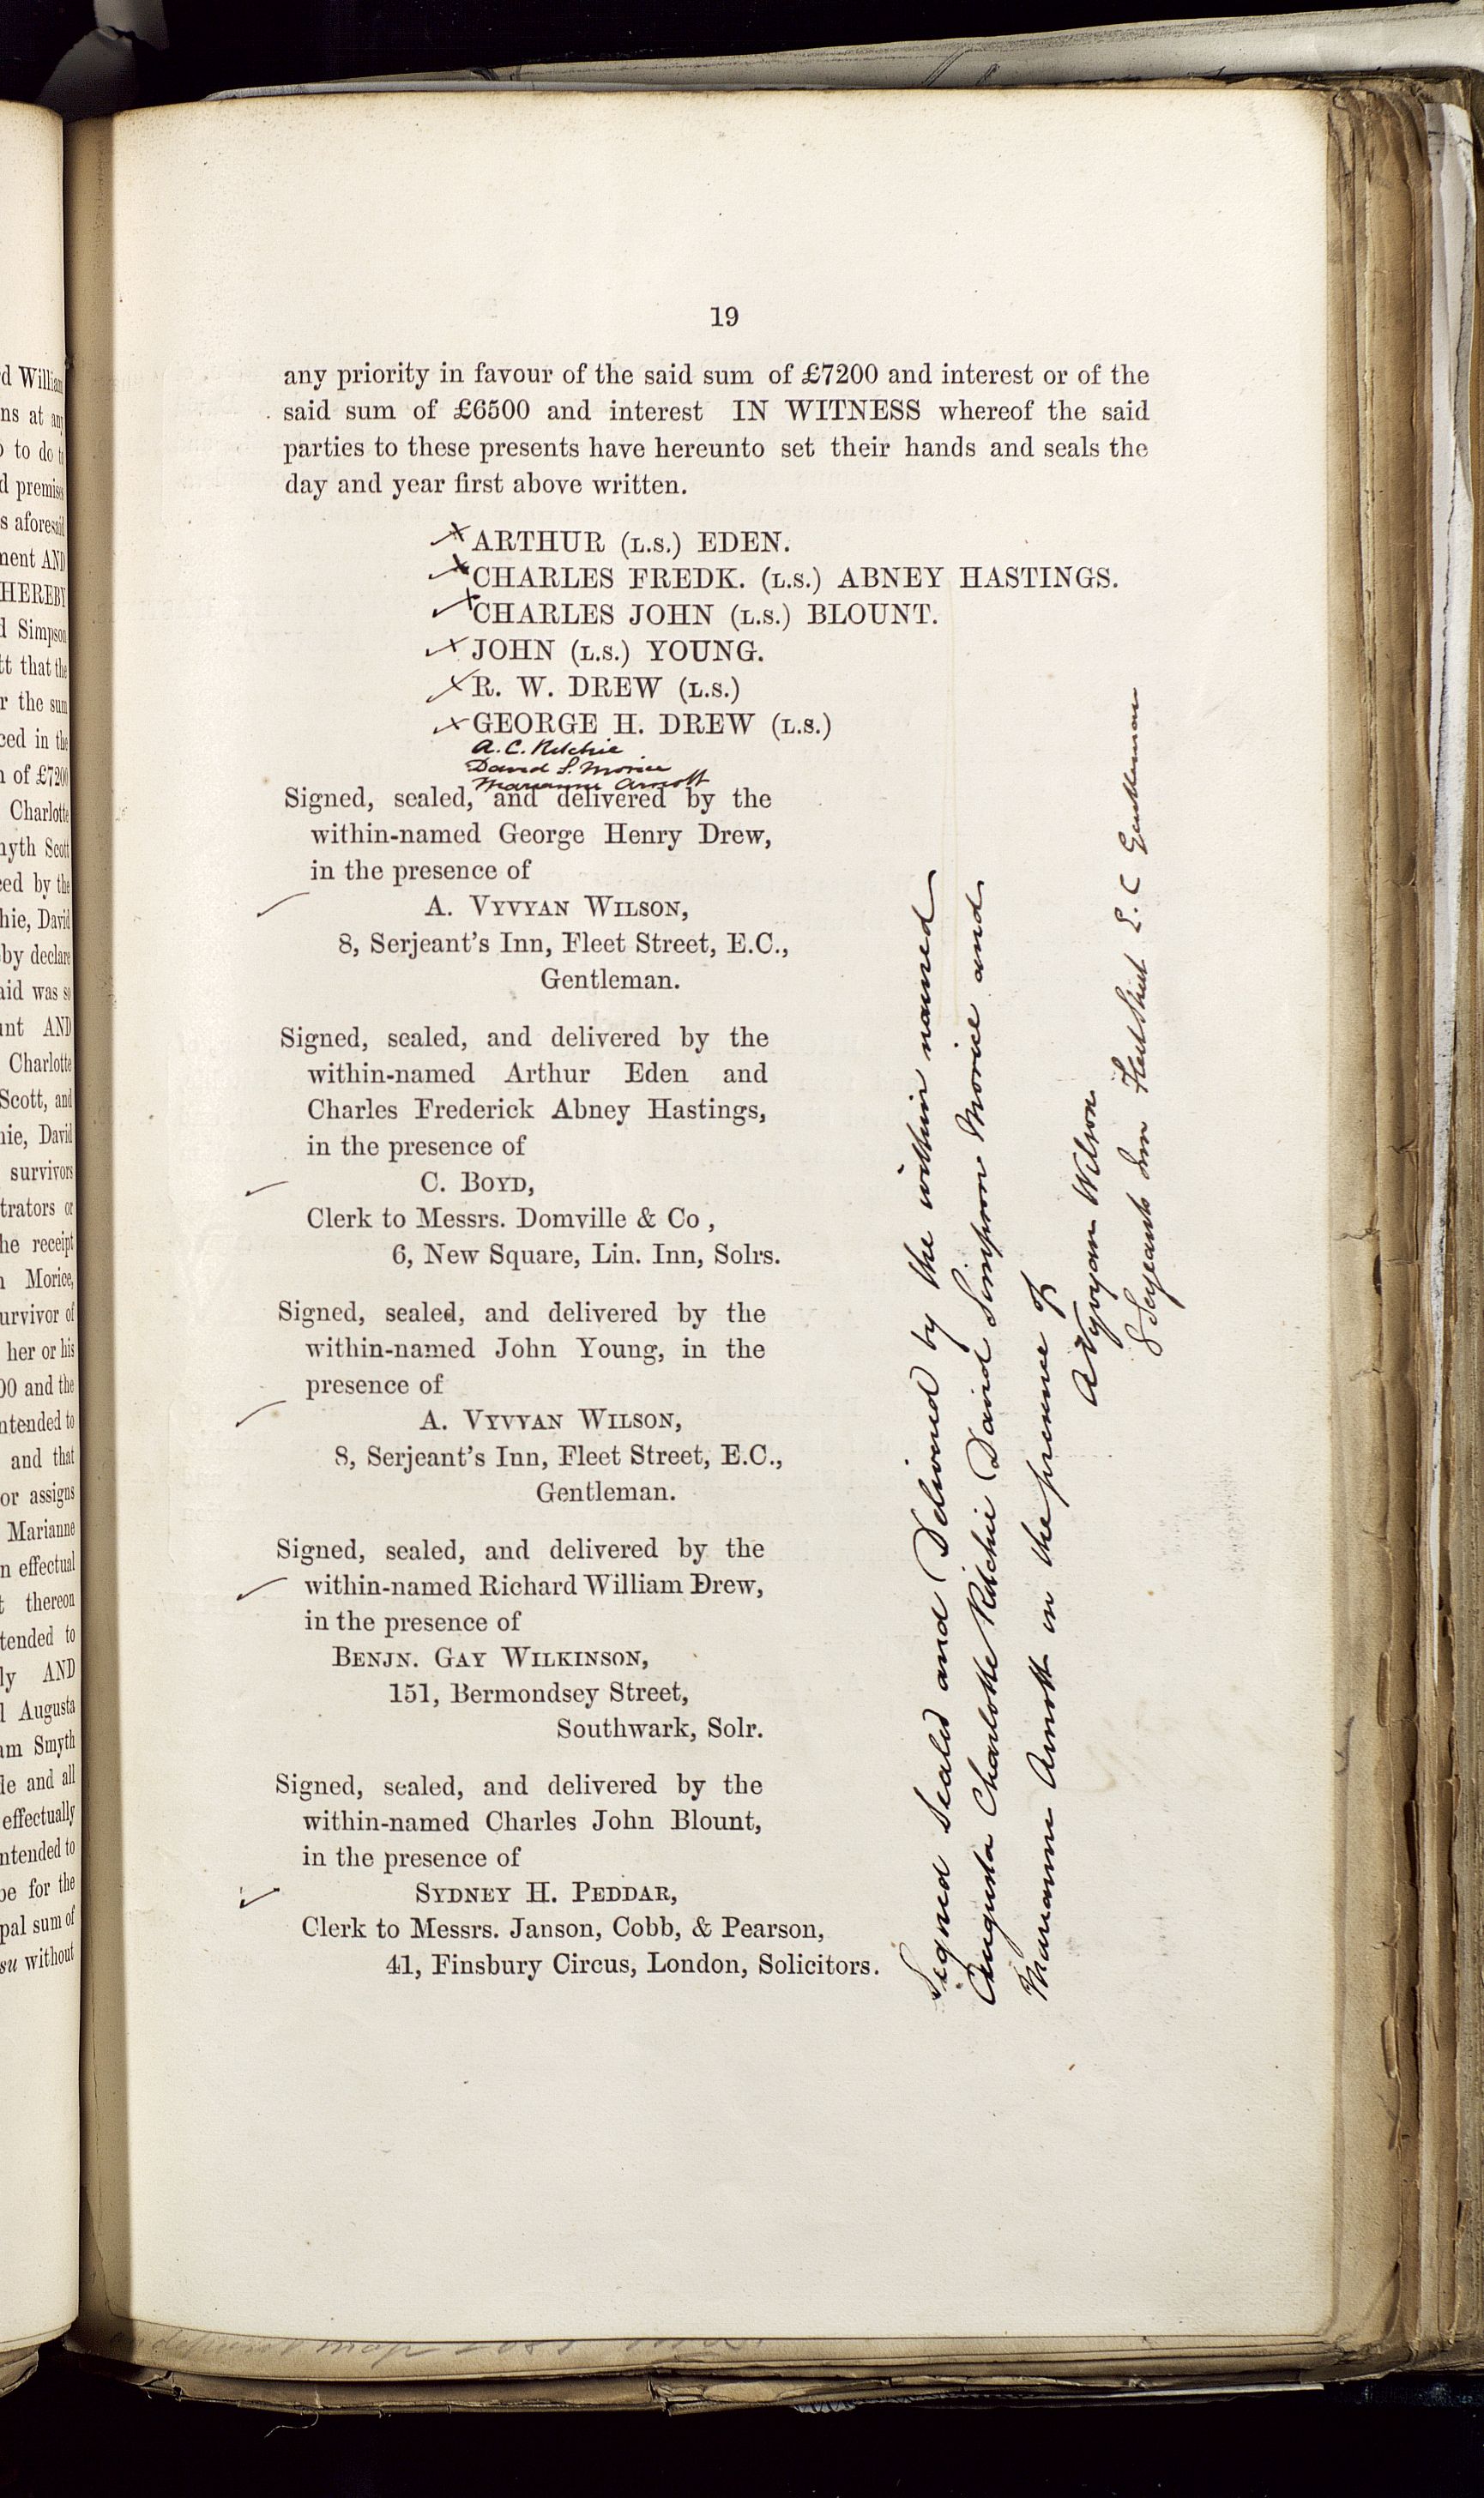 19
any priority in favour of the said sum of £7200 and interest or of the
said sum of £6500 and interest IN WITNESS whereof the said
parties to these presents have hereunto set their hands and seals the
day and year first above written.
ARTHUR (L.S.) EDEN.
CHARLES FREDK. (L.S.) ABNEY HASTINGS.
CHARLES JOHN (L.S.) BLOUNT.
JOHN (L.S.) YOUNG.
R. W. DREW (L.S.)
GEORGE H. DREW (L.S.)
A. C. Ritchie
David S. Morice
Marianne Arnott
Signed, sealed, and delivered by the
within-named George Henry Drew,
in the presence of
A. VYVYAN WILSON,
8, Serjeant's Inn, Fleet Street, E.C.,
Gentleman.
Signed, sealed, and delivered by the
within-named Arthur Eden and
Charles Frederick Abney Hastings,
in the presence of
C. BOYD,
Clerk to Messrs. Domville & Co,
6, New Square, Lin. Inn, Solrs.
Signed, sealed, and delivered by the
within-named John Young, in the
presence of
A. VYVYAN WILSON,
8, Serjeant's Inn, Fleet Street, E.C.,
Gentleman.
Signed, sealed, and delivered by the
within-named Richard William Drew,
in the presence of
BENJN. GAY WILKINSON,
151, Bermondsey Street,
Southwark, Solr.
Signed, sealed, and delivered by the
within-named Charles John Blount,
in the presence of
SYDNEY H. PEDDAR,
Clerk to Messrs. Janson, Cobb, & Pearson,
41, Finsbury Circus, London, Solicitors.
Signed Sealed and Delivered by the within named
Augusta Charlotte Ritchie David Simpson Morice and
Marianne Arnott in the presence of
A Vyvyan Wilson
8 Serjeants Inn Fleet Street E.C Gentleman
d William
ns at any
to do
d premises
s aforesaid
ment AND
HEREBY
d Simpson
tt that the
r the sum
ced in the
n of £7200
Charlotte
myth Scott
ced by the
hie, David
by declare
aid was so
unt AND
Charlotte
Scott, and
hie, David
survivors
trators or
he receipt
n Morice,
urvivor of
her or his
00 and the
ntended to
and that
or assigns
Marianne
n effectual
t thereon
tended to
ly AND
d Augusta
am Smyth
le and all
effectually
ntended to
be for the
pal sum of
su without